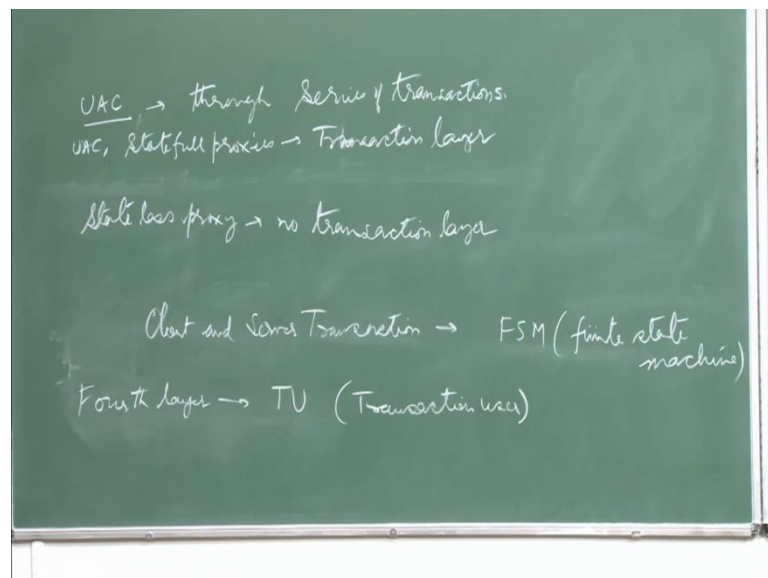 UAC → through series of transactions.
UAC, Statefull proxies → Transaction layer
State less proxy → no transaction layer
Client and Server Transaction → FSM (finite state machine)
Fourth layer → TU (Transaction user)